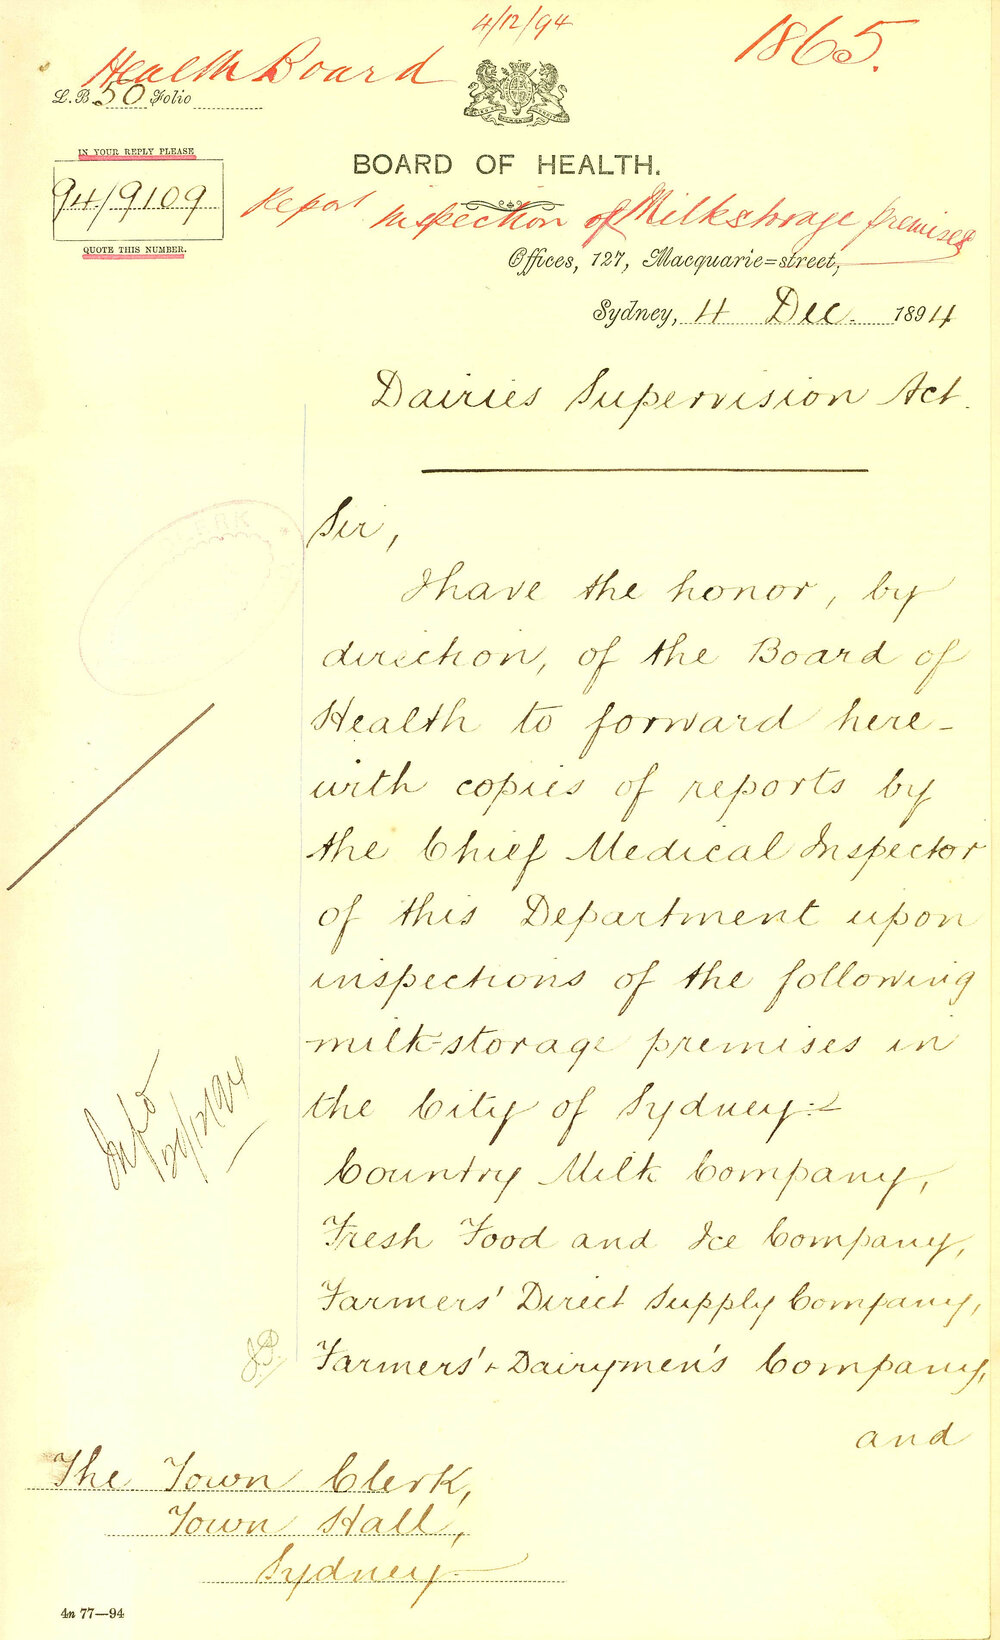 4/12/94
1865.
Health Board
L.B 50 Folio
BOARD OF HEALTH.
IN YOUR REPLY PLEASE
94/9109
QUOTE THIS NUMBER.
Report Inspection of Milk storage premises
Offices, 127, Macquarie=street,
Sydney, 4 Dec. 1894
Dairies Supervision Act.
Sir,
I have the honor, by
direction, of the Board of
Health to forward here-
with copies of reports by
the Chief Medical Inspector
of this Department upon
inspections of the following
milk-storage premises in
the City of Sydney:-
Country Milk Company,
Fresh Food and Ice Company,
Farmers' Direct Supply Company,
Farmers' + Dairymen's Company,
and
The Town Clerk,
Town Hall,
Sydney
4n 77—94